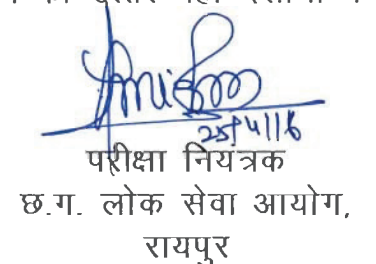 25/4/16
परीक्षा नियंत्रक
छ.ग. लोक सेवा आयोग,
रायपुर